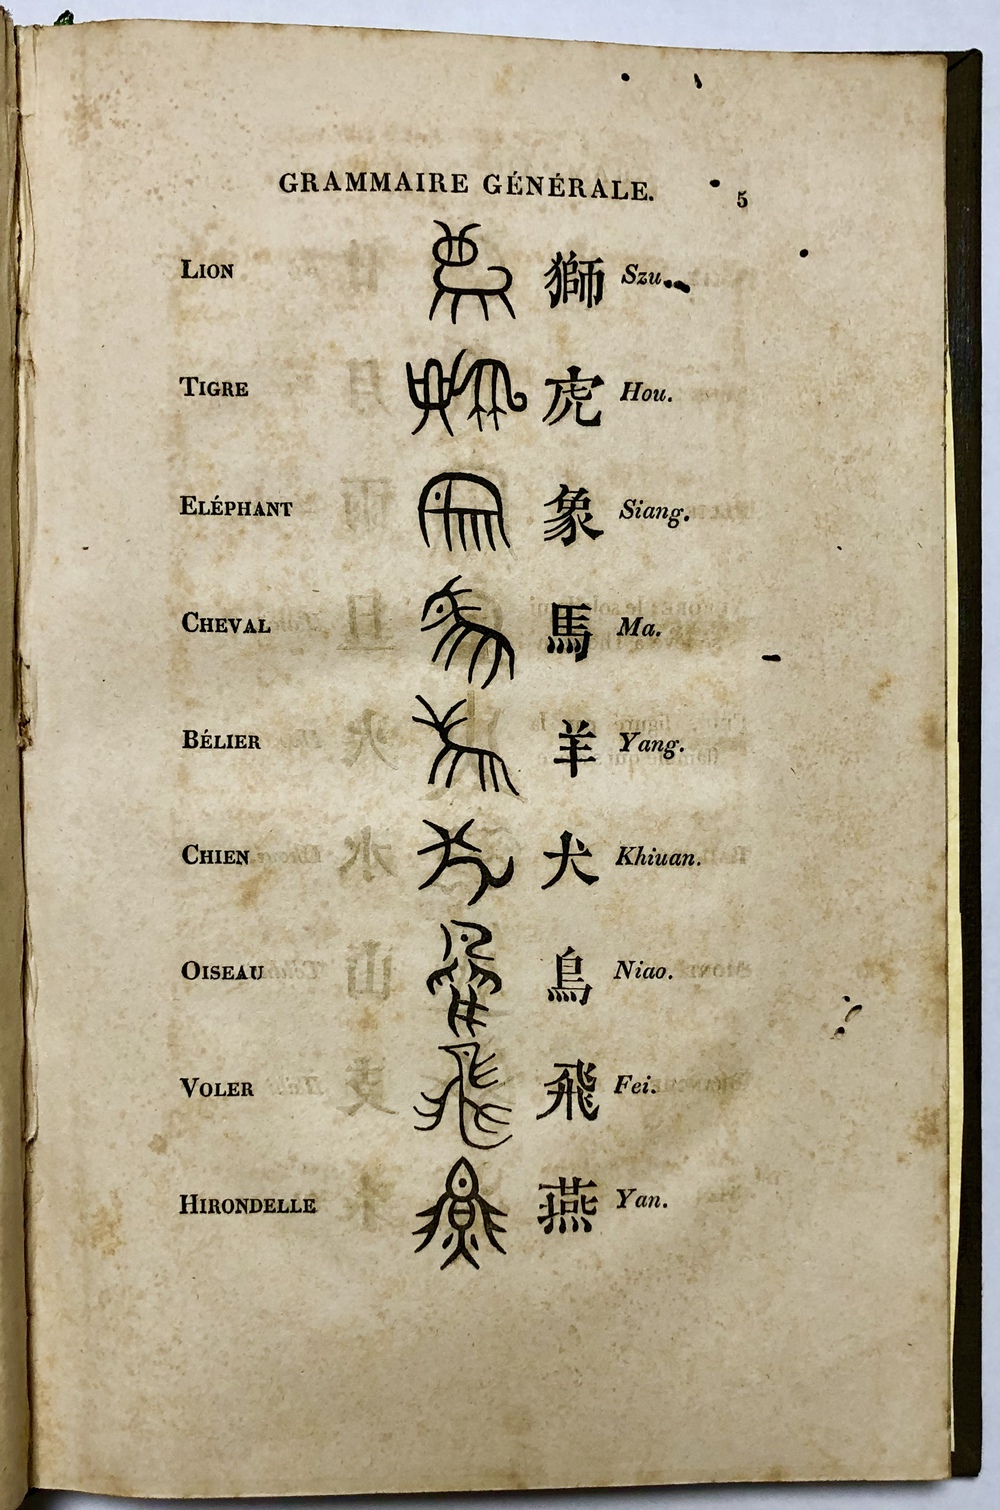 GRAMMAIRE GÉNÉRALE. 5
LION 獅 Szu.
TIGRE 虎 Hou.
ELÉPHANT 象 Siang.
CHEVAL 馬 Ma.
BÉLIER 羊 Yang.
CHIEN 犬 Khiuan.
OISEAU 鳥 Niao.
VOLER 飛 Fei.
HIRONDELLE 燕 Yan.